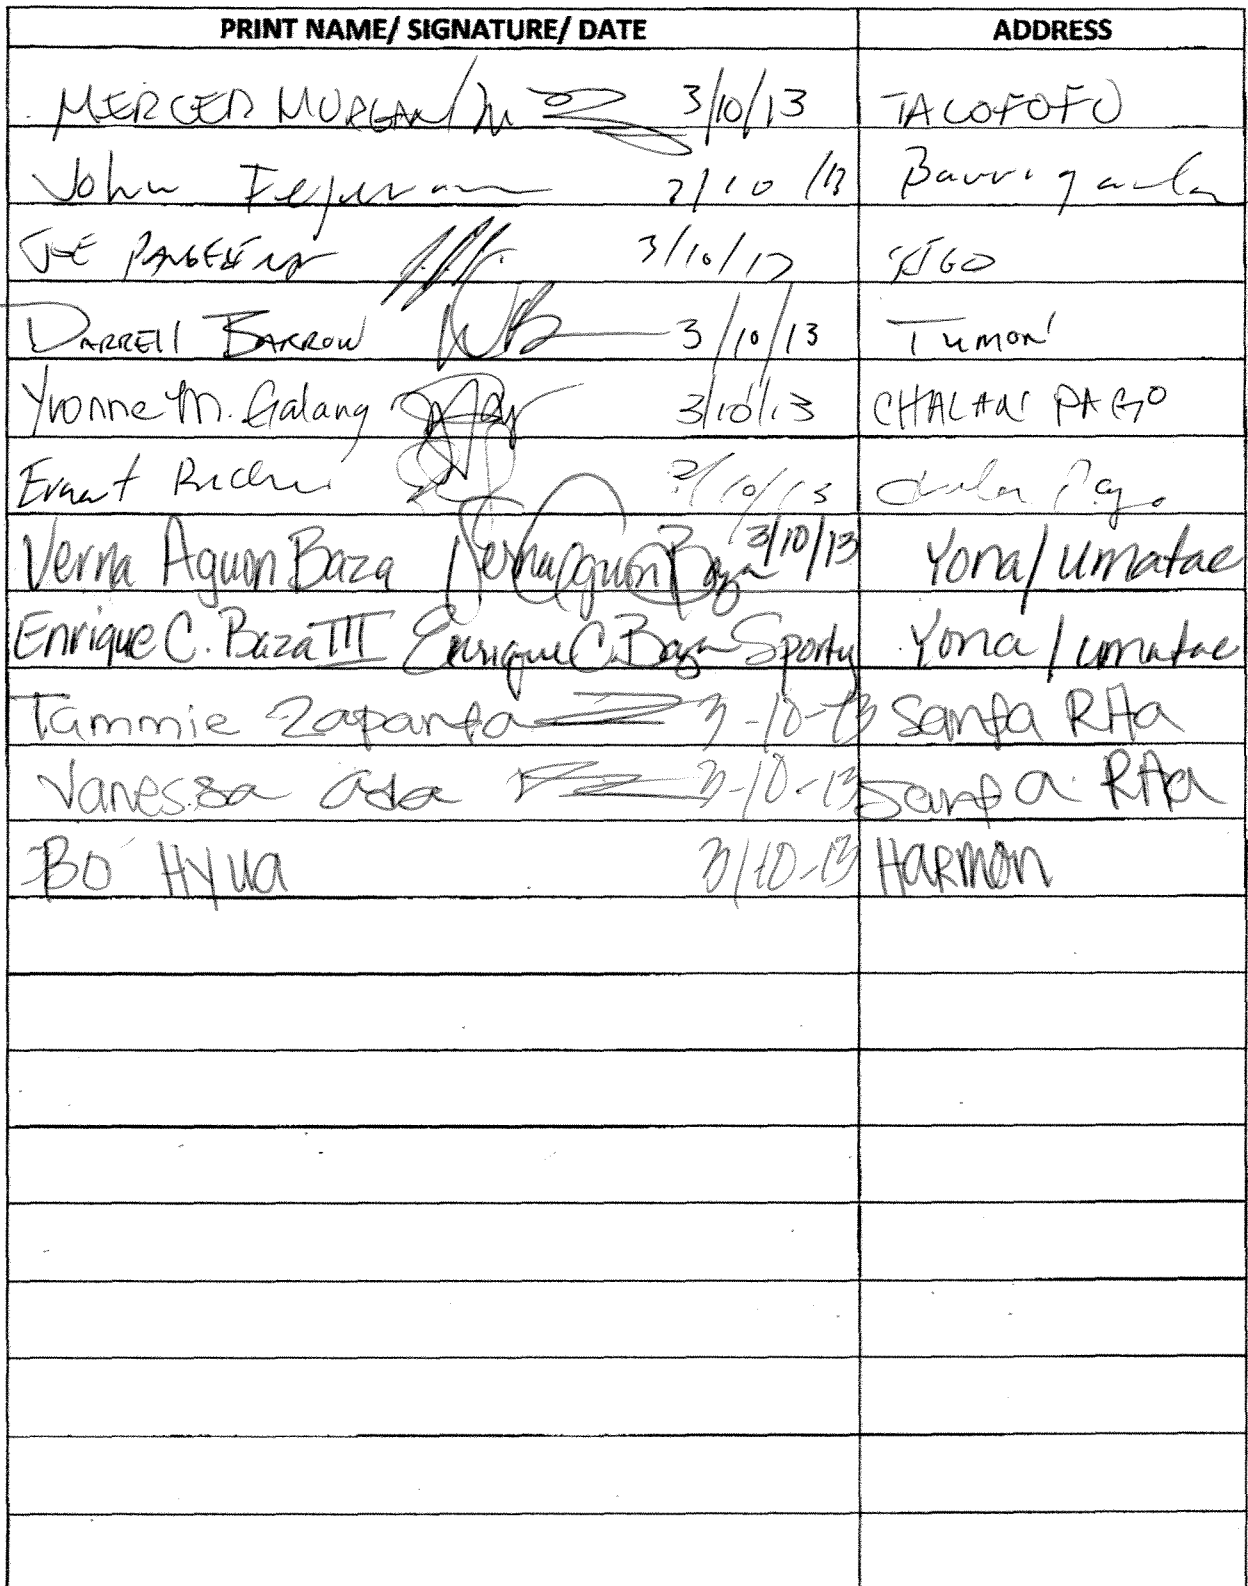 PRINT NAME/ SIGNATURE/ DATE ADDRESS
MERCED MORGAN 3/10/13 TALOFOFO
John 3/10/13 Barrigada
JOE 3/10/13 YIGO
DARRELL BARROW 3/10/13 Tumon
Yvonne M. Galang 3/10/13 CHALAN PAGO
3/10/13
Verna Aguon Baza Verna Aguon Baza 3/10/13 Yona/Umatac
Enrique C. Baza III Enrique C. Baza Yona/Umatac
Tammie Zapanta 3-10-13 Santa RIta
Vanessa Ada 3-10-13 Santa RIta
Bo Hyua 3/10-13 HARMON